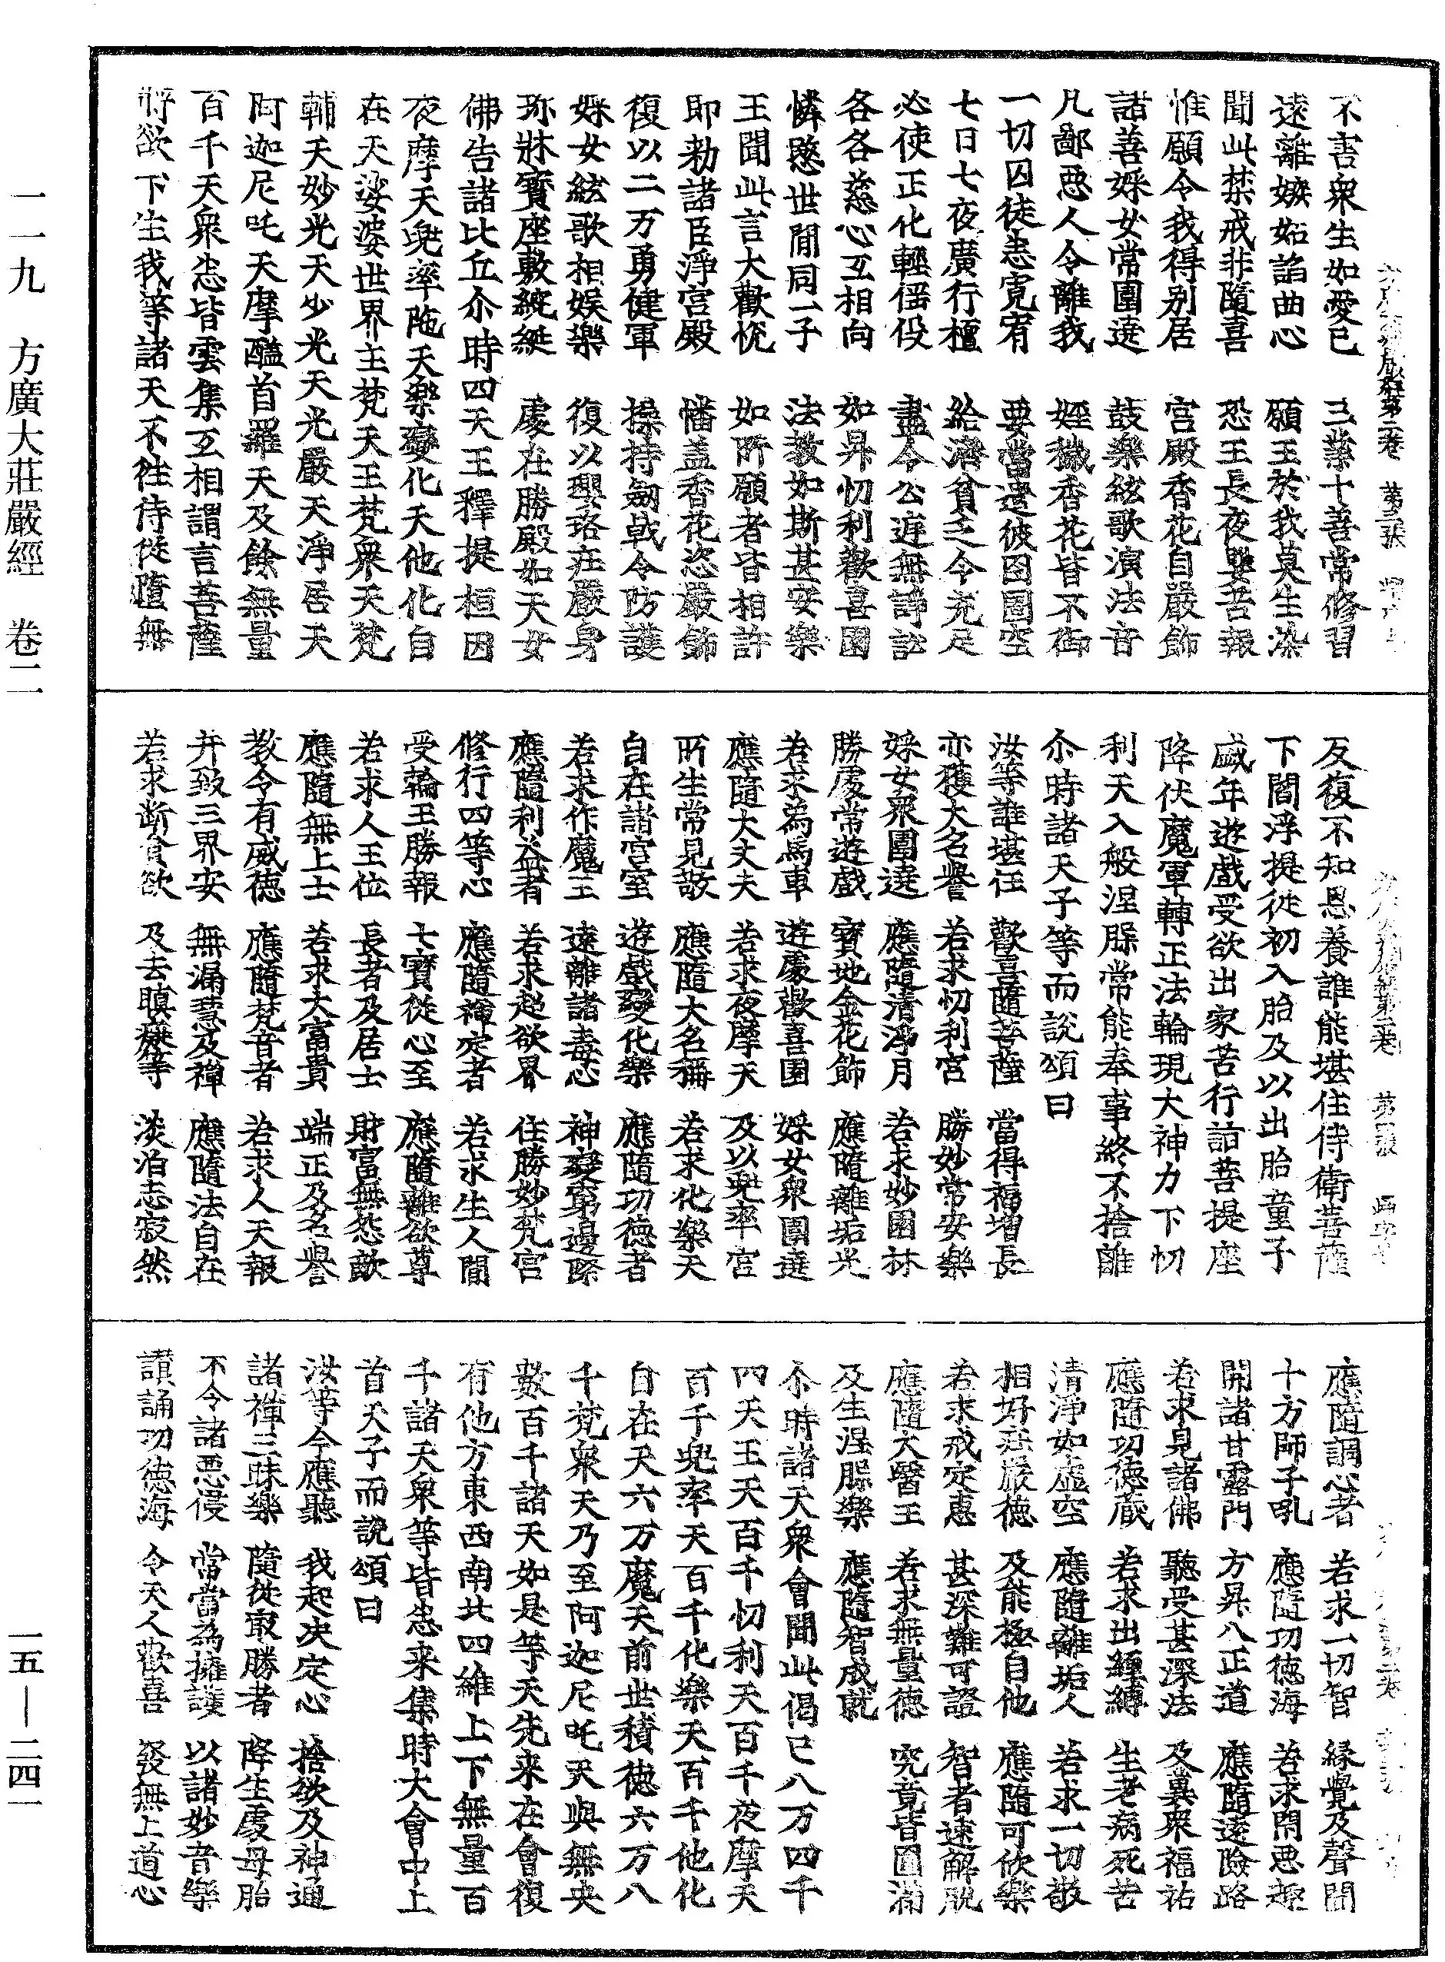 不害衆生如愛已　三業十善常修習
遠離嫉妬諂曲心　願王於我莫生染
聞此禁戒非隨喜　恐王長夜嬰苦報
惟願令我得別居　宮殿香花自嚴飾
諸善婇女常圍遶　鼓樂絃歌演法音
凡鄙惡人令離我　婬穢香花皆不御
一切囚徒悉寬宥　要當還彼囹圄空
七日七夜廣行檀　給濟貧乏令充足
必使正化輕徭役　盡令公庭無諍訟
各各慈心互相向　如昇忉利歡喜園
憐愍世間同一子　法教如斯甚安樂
王聞此言大歡悅　如所願者皆相許
即勑諸臣淨宮殿　幡蓋香花恣嚴飾
復以二万勇健軍　操持劒戟令防護
婇女絃歌相娛樂　復以瓔珞莊嚴身
珎牀寶座敷綩綖　處在勝殿如天女
佛告諸比丘尒時四天王釋提桓因
夜摩天兜率陁天樂變化天他化自
在天娑婆世界主梵天王梵衆天梵
輔天妙光天少光天光嚴天淨居天
阿迦尼吒天摩醯首羅天及餘無量
百千天衆悉皆雲集互相謂言菩薩
將欲下生我等諸天不往侍從隨無
反復不知恩養誰能堪任侍衛菩薩
下閻浮提從初入胎及以出胎童子
盛年遊戲受欲出家苦行詣菩提座
降伏魔軍轉正法輪現大神力下忉
利天入般涅膟常能奉事終不捨離
尒時諸天子等而說頌曰
汝等誰堪任　歡喜隨菩薩　當得福增長
亦獲大名譽　若求忉利宮　勝妙常安樂
婇女衆圍遶　應隨清淨月　若求妙園林
勝處常遊戲　寶地金花飾　應隨離垢光
若求為馬車　遊處歡喜園　婇女衆圍遶
應隨大丈夫　若求夜摩天　及以兜率宮
所生常見敬　應隨大名稱　若求化樂天
自在諸宮室　遊戲變化樂　應隨功德者
若求作魔王　遠離諸毒心　神變窮邊際
應隨利益者　若求超欲界　住勝妙梵宮
修行四等心　應隨禪定者　若求生人間
受輪王勝報　七寶從心至　應隨離欲尊
若求人王位　長者及居士　財富無怨敵
應隨無上士　若求大富貴　端正及名譽
教令有威德　應隨梵音者　若求人天報
并致三界安　無漏慧及禪　應隨法自在
若求斷貪欲　及去瞋癡等　淡泊志寂然
應隨調心者　若求一切智　緣覺及聲聞
十方師子吼　應隨功德海　若求閉惡趣
開諸甘露門　方昇八正道　應隨遠險路
若求見諸佛　聽受甚深法　及異衆福祐
應隨功德嚴　若求出纏縛　生老病死苦
清淨如虛空　應隨離垢人　若求一切敬
相好莊嚴德　及能極自他　應隨可欣樂
若求戒定慧　甚深難可證　智者速解脫
應隨大醫王　若求無量德　究竟皆圓滿
及生涅膟樂　應隨智成就
尒時諸天衆會聞此偈已八万四千
四天王天百千忉利天百千夜摩天
百千兜率天百千化樂天百千他化
自在天六万魔天前世積德六万八
千梵衆天乃至阿迦尼吒天與無央
數百千諸天如是等天先来在會復
有他方東西南北四維上下無量百
千諸天衆等皆悉来集時大會中上
首天子而說頌曰
汝等今應聽　我起決定心　捨欲及神通
諸禪三昧樂　隨從最勝者　降生處母胎
不令諸惡侵　常當為擁護　以諸妙音樂
讃誦功德海　令天人歡喜　發無上道心
一一九　方廣大莊嚴經　卷二
一五—二四一